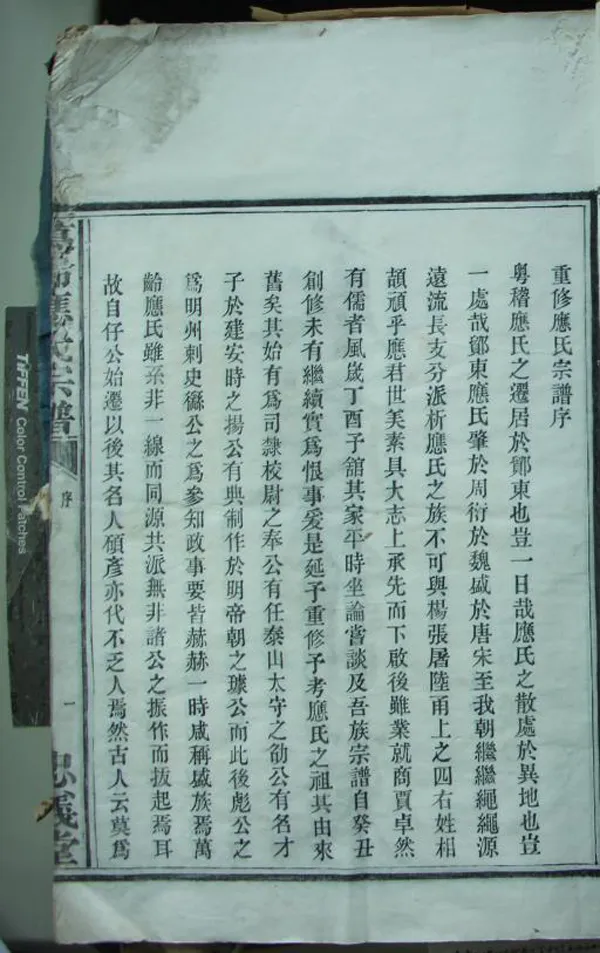 重修應氏宗譜序
粵稽應氏之遷居於鄮東也豈一日哉應氏之散處於異地也豈
一處哉鄮東應氏肇於周衍於魏盛於唐宋至我朝繼繼繩繩源
遠流長支分派析應氏之族不可與楊張屠陸甬上之四右姓相
頡頏乎應君世美素具大志上承先而下啟後雖業就商賈卓然
有儒者風歲丁酉予舘其家平時坐論嘗談及吾族宗譜自癸丑
創修未有繼續實爲恨事爰是延予重修予考應氏之祖其由來
舊矣其始有爲司隸校尉之奉公有任泰山太守之劭公有名才
子於建安時之瑒公有典制作於明帝朝之璩公而此後彪公之
爲明州刺史繇公之爲參知政事要皆赫赫一時咸稱盛族焉萬
齡應氏雖系非一線而同源共派無非諸公之振作而拔起焉耳
故自仔公始遷以後其名人碩彥亦代不乏人焉然古人云莫爲
萬齡應氏宗譜
序
一
忠義堂
TIFFEN Color Control Patches